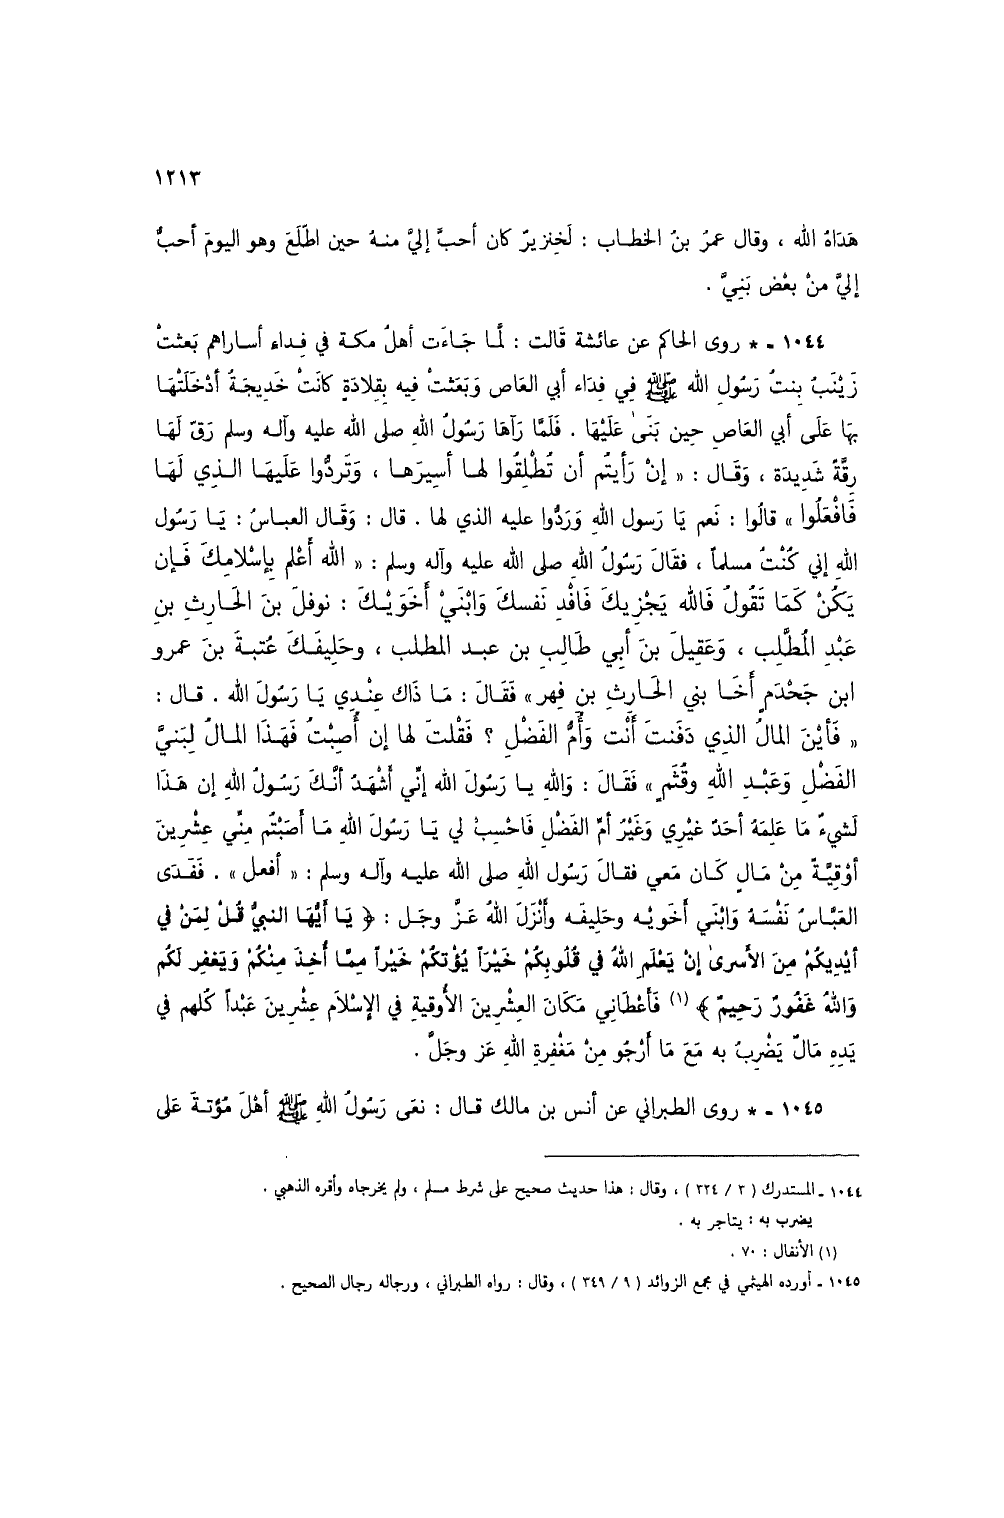 ١٢١٣
هَدَاهُ الله ، وقال عمرُ بنُ الخطاب : لَخِنزيرٌ كان أحبَّ إليَّ منهُ حين اطَّلَعَ وهو اليومَ أحبُّ
إليَّ منْ بعْض بَنِيَّ .
١٠٤٤ ـ * روى الحاكم عن عائشة قَالت : لَّما جَاءَت أهلُ مكة في فِداء أساراهم بَعثتْ
زَيْنَبُ بِنتُ رَسُولِ الله ﷺ فِي فِدَاء أبي العَاص وَبَعَثتْ فِيه بِقلادَةٍ كانَتْ خَديجَةُ أدْخَلَتْهَا
بِهَا عَلَى أبي العَاصِ حِين بَنَىٰ عَلَيْهَا . فَلَمَّا رَآهَا رَسُولُ اللهِ صلى الله عليه وآله وسلم رَقّ لَهَا
رِقَّةً شَدِيدَة ، وَقَال : « إنْ رَأيتُم أن تُطْلِقُوا لها أسيرَها ، وَتَردُّوا عَلَيهَا الذي لَهَا
فَافْعَلُوا » قالُوا : نَعم يَا رَسول اللهِ وَرَدُّوا عليه الذي لها . قال : وَقَال العباسُ : يَا رَسُول
اللهِ إني كُنْتُ مسلماً ، فقَالَ رَسُولُ اللهِ صلى الله عليه وآله وسلم : « الله أَعْلم بِإسْلامِكَ فَإن
يَكُنْ كَمَا تَقُولُ فَالله يَجْزِيكَ فَافْدِ نَفسكَ وَابْنَيْ أَخَوَيْكَ : نوفلَ بنَ الحَارِثِ بنِ
عَبْدِ المُطَّلِب ، وَعَقِيلَ بنَ أبي طَالِبِ بن عبد المطلب ، وحَلِيفَكَ عُتبةَ بنَ عمرو
ابن جَحْدَمٍ أَخَا بني الحَارِثِ بنِ فِهر » فَقَالَ : مَا ذَاك عِنْدِي يَا رَسُولَ الله . قال :
« فَأيْنَ المَالُ الذِي دَفَنتَ أَنْت وَأمُّ الفَضْلِ ؟ فَقْلتَ لها إن أُصِبْتُ فَهَذَا المالُ لِبَنيَّ
الفَضْلِ وَعَبْدِ اللهِ وقُثَمٍ » فَقَالَ : وَاللهِ يا رَسُولَ الله إنِّي أشْهَدُ أنَّكَ رَسُولُ اللهِ إن هَذَا
لَشيءٌ مَا عَلِمَهُ أحَدٌ غيْرِي وَغَيْرُ أمِّ الفَضْلِ فَاحْسِبْ لي يَا رَسُولَ اللهِ مَا أصَبْتُم مِنِّي عِشْرِينَ
أوْقِيَّةً مِنْ مَالٍ كَان مَعي فقالَ رَسُول اللهِ صلى الله عليه وآله وسلم : « أفعل » . فَفَدَى
العَبَّاسُ نَفْسَهُ وَابْنَي أخَويْه وحَلِيفَه وأنْزَلَ اللهُ عَزَّ وجَل : ﴿ يَا أَيُّهَا النبيُّ قُلْ لِمَنْ في
أيْدِيكُمْ مِنَ الأَسرىٰ إنْ يَعْلَمِ اللهُ في قُلُوبِكُمْ خَيْرَاً يُؤْتِكُمْ خَيْراً مِمَّا أُخِذَ مِنْكُمْ وَيَغفِر لَكُم
وَاللهُ غَفُورٌ رَحِيمٌ ﴾ (١) فَأعْطَانِي مَكَانَ العِشْرِينَ الأُوقيةِ في الإسْلاَم عِشْرِينَ عَبْداً كُلهم في
يَدِهِ مَالٌ يَضْرِبُ به مَعَ مَا أَرْجُو مِنْ مَغْفِرةِ اللهِ عَز وجَلَّ .
١٠٤٥ ـ * روى الطبراني عن أنس بن مالك قال : نعَى رَسُولُ اللهِ ﷺ أهْلَ مُؤتةَ عَلى
١٠٤٤ ـ المستدرك ( ٣ / ٣٢٤ ) ، وقال : هذا حديث صحيح على شرط مسلم ، ولم يخرجاه وأقره الذهبي .
يضرب به : يتاجر به .
(١) الأنفال : ٧٠ .
١٠٤٥ ـ أورده الهيثمي في مجمع الزوائد ( ٩ / ٣٤٩ ) ، وقال : رواه الطبراني ، ورجاله رجال الصحيح .